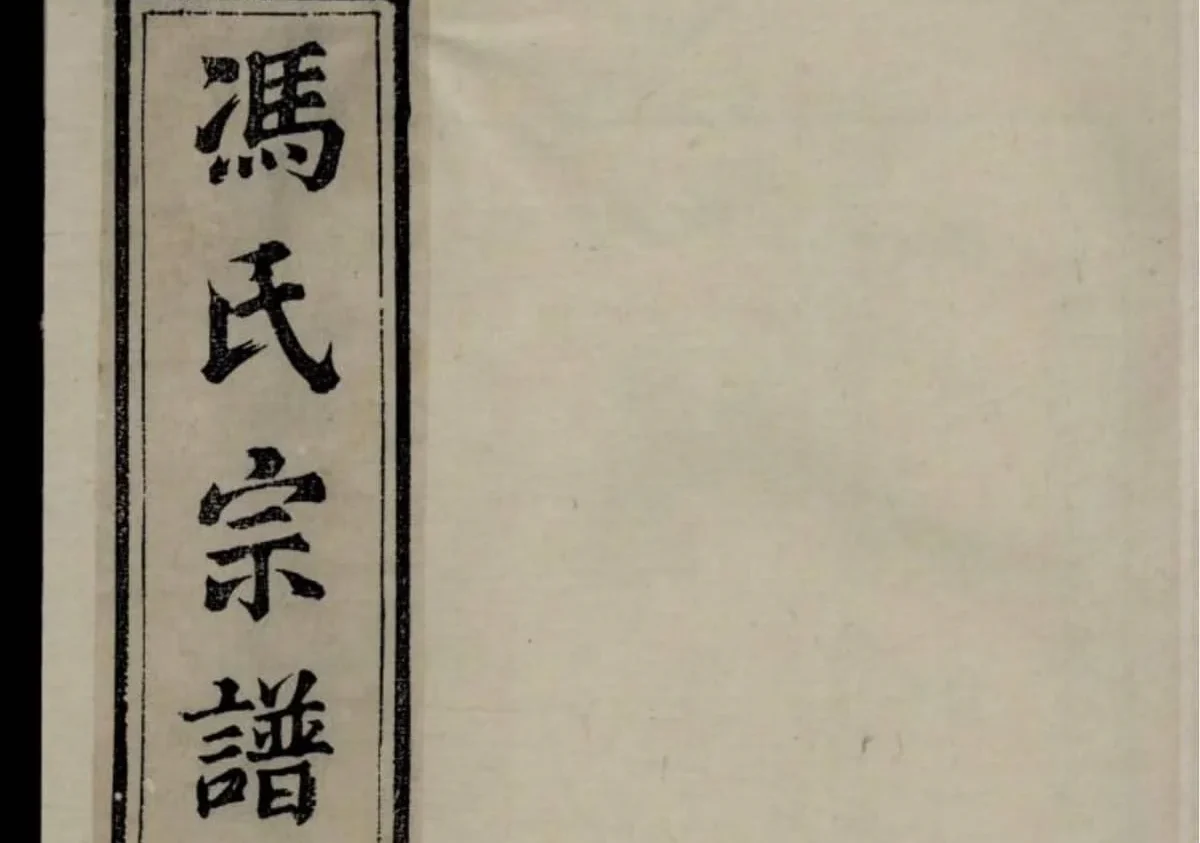 馮氏宗譜